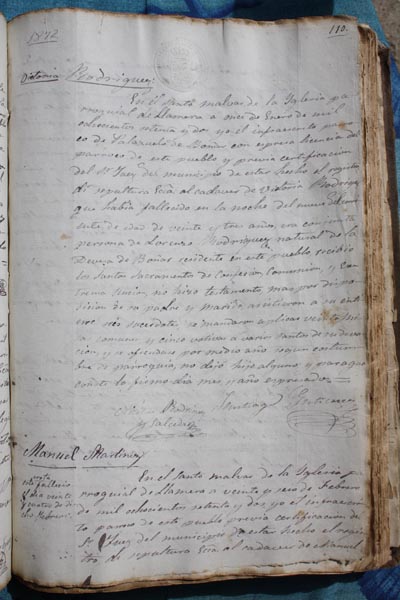 1872
110.
Victoria Rodriguez
En el Santo malvar de la Yglesia pa
rroquial de Llamera a once de Enero de mil
ochocientos setenta y dos yo el infraescrito parro
co de Palazuelo de Boñar con espresa licencia del
parroco de este pueblo y previa certificacion
del Sr Juez del municipio de estar hecho el registro
di sepultura Ecca al cadaver de Victoria Rodriguez
que habia fallecido en la noche del nueve del corr
iente, de edad de veinte y tres años, era conjunta
persona de Lorenzo Rodriguez natural de la
de Boñar residente en este pueblo recibio
los Santos Sacramentos de Confesion, Comunion, y Ex
trema Uncion, no hizo testamento mas por dispo
sicion de su padre y marido asistieron a su enti
erro seis sacerdotes, se mandaron aplicar veinte mi
sas comunes y cinco votivas a varios santos de su devo
cion, y se ofrendase por medio año segun costum
bre de parroquia, no dejó hijo alguno y para que
conste lo firmo dia mes y año espresados =
Rodriguez Santiago
y Salcedo
Manuel Martinez
este fallecio
el dia veinte
y cuatro de di
cho Febrero
En el Santo malvar de la Yglesia pa
rroquial de Llamera a veinte y seis de Febrero
de mil ochocientos setenta y dos yo el infraescri
to parroco de este pueblo previa certificacion del
Sr Juez del municipio de estar hecho el regis
tro di sepultura Ecca al cadaver de Manuel